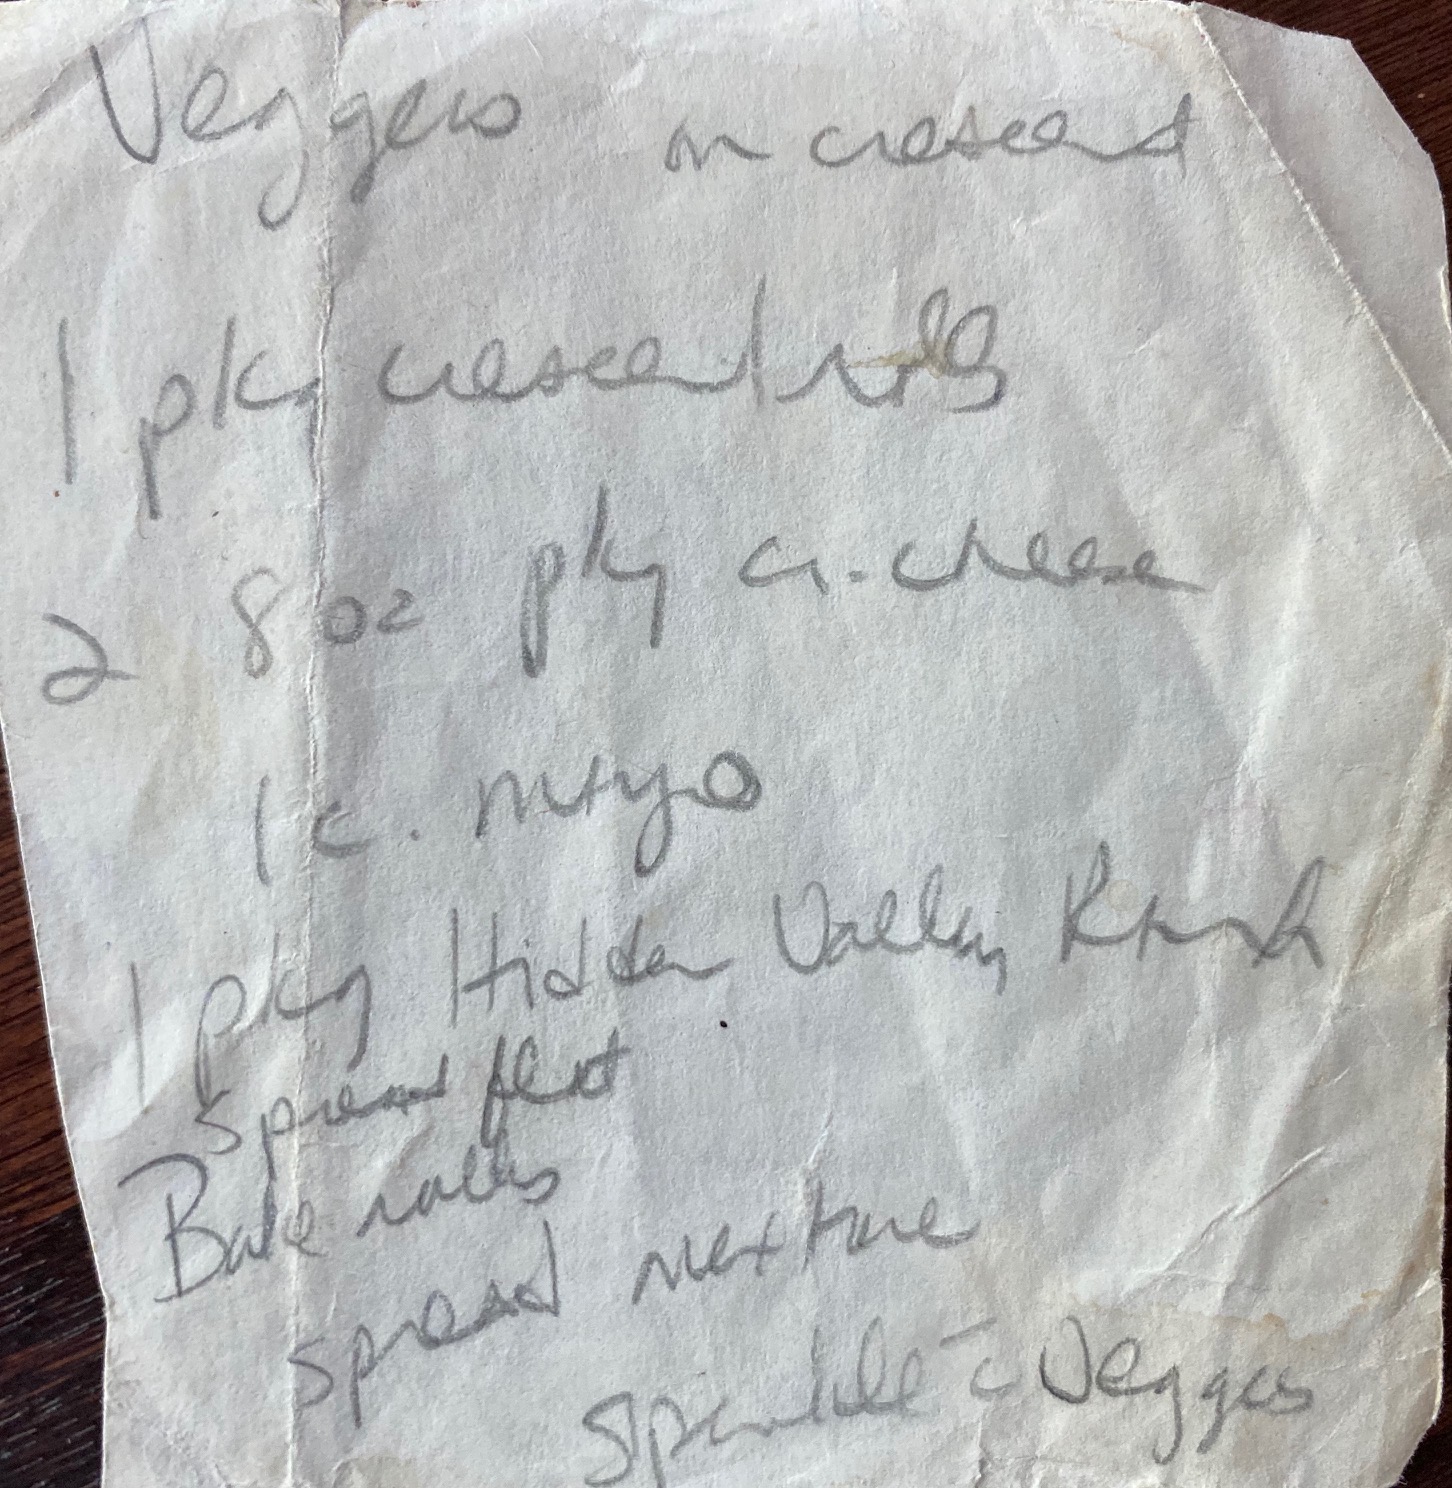 Veggies on crescent
1 pkg crescent rolls
2 8 oz pkg cr. cheese
1 c. mayo
1 pkg Hidden Valley Ranch
Spread flat
Bake rolls
spread mixture
sprinkle c̄ Veggies